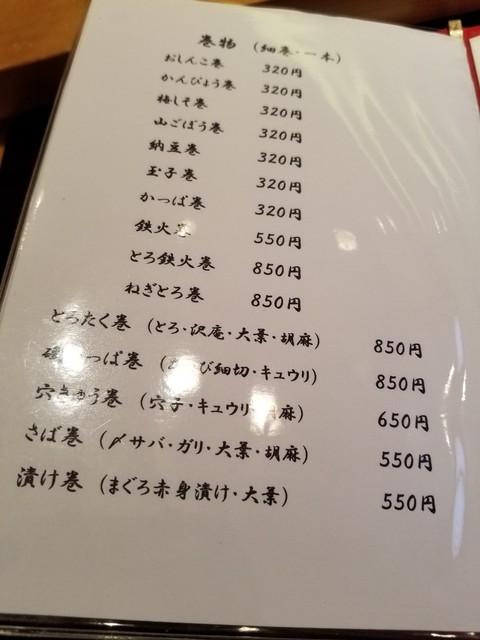 巻物 (細巻・一本)
おしんこ巻 320円
かんぴょう巻 320円
梅しそ巻 320円
山ごぼう巻 320円
納豆巻 320円
玉子巻 320円
かっぱ巻 320円
鉄火巻 550円
とろ鉄火巻 850円
ねぎとろ巻 850円
とろたく巻 (とろ・沢庵・大葉・胡麻) 850円
っぱ巻 (び細切・キュウリ) 850円
穴きゅう巻 (穴子・キュウリ・胡麻) 650円
さば巻 (〆サバ・ガリ・大葉・胡麻) 550円
漬け巻 (まぐろ赤身漬け・大葉) 550円